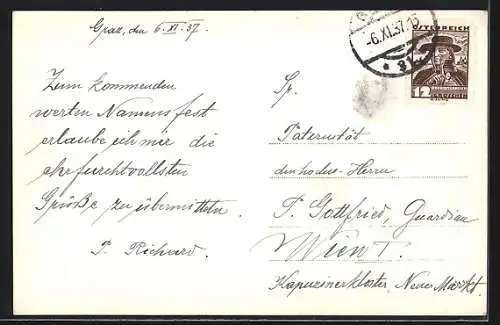 Graz, den 6. XI. 37.
-6.XI.37.15
ÖSTERREICH
12
Zum kommenden
werten Namensfest
erlaube ich mir die
ehrfurchtvollsten
Grüße zu übermitteln.
P. Richard.
Sr.
Paternität
den hochw. Herrn
P. Gottfried, Guardian
Wien I.
Kapuzinerkloster, Neuer Markt.